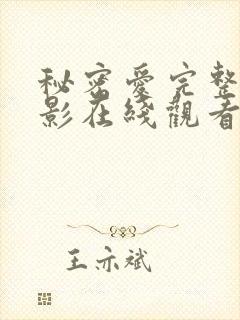 秘密愛完整
影在綫觀看
王亦斌